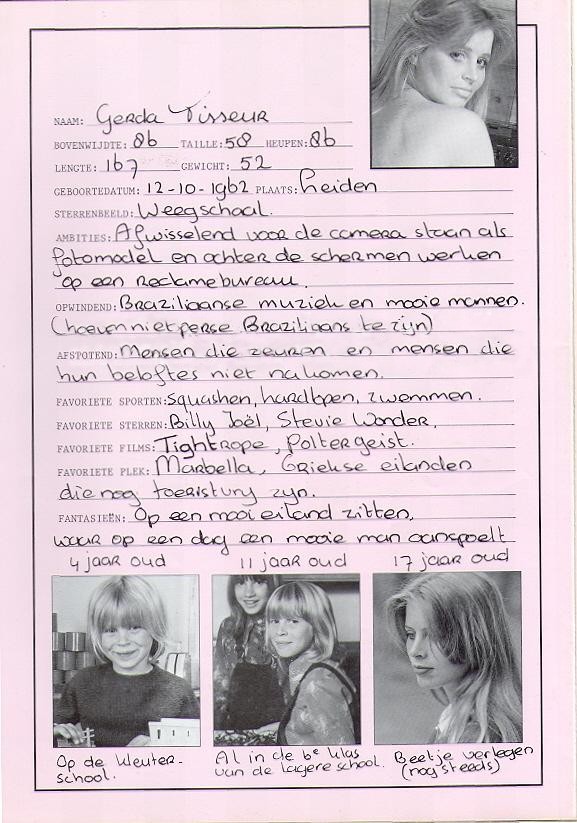 NAAM: Gerda Visseur
BOVENWIJDTE: 86 TAILLE: 58 HEUPEN: 86
LENGTE: 167 GEWICHT: 52
GEBOORTEDATUM: 12-10-1962 PLAATS: Leiden
STERRENBEELD: Weegschaal.
AMBITIES: Afwisselend voor de camera staan als
fotomodel en achter de schermen werken
op een reclamebureau.
OPWINDEND: Braziliaanse muziek en mooie mannen.
(hoeven niet perse Braziliaans te zijn)
AFSTOTEND: Mensen die zeuren en mensen die
hun beloftes niet nakomen.
FAVORIETE SPORTEN: squashen, hardlopen, zwemmen.
FAVORIETE STERREN: Billy Joël, Stevie Wonder,
FAVORIETE FILMS: Tightrope, Poltergeist.
FAVORIETE PLEK: Marbella, Griekse eilanden
die nog toeristvrij zijn.
FANTASIEËN: Op een mooi eiland zitten,
waar op een dag een mooie man aanspoelt
4 jaar oud 11 jaar oud 17 jaar oud
Op de kleuter-
school.
Al in de 6e klas
van de lagere school.
Beetje verlegen
(nog steeds)